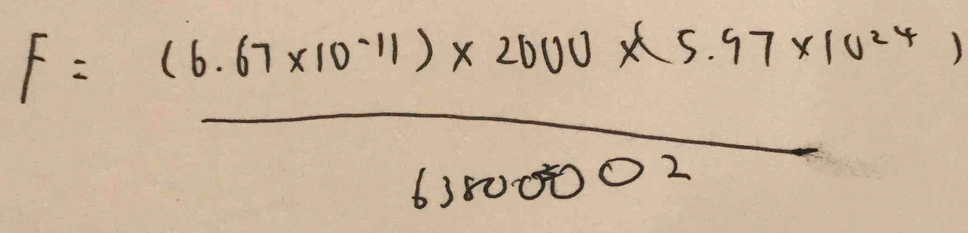 F = (6.67×10^-11) × 2000 × (5.97×10^24)
6380000^2